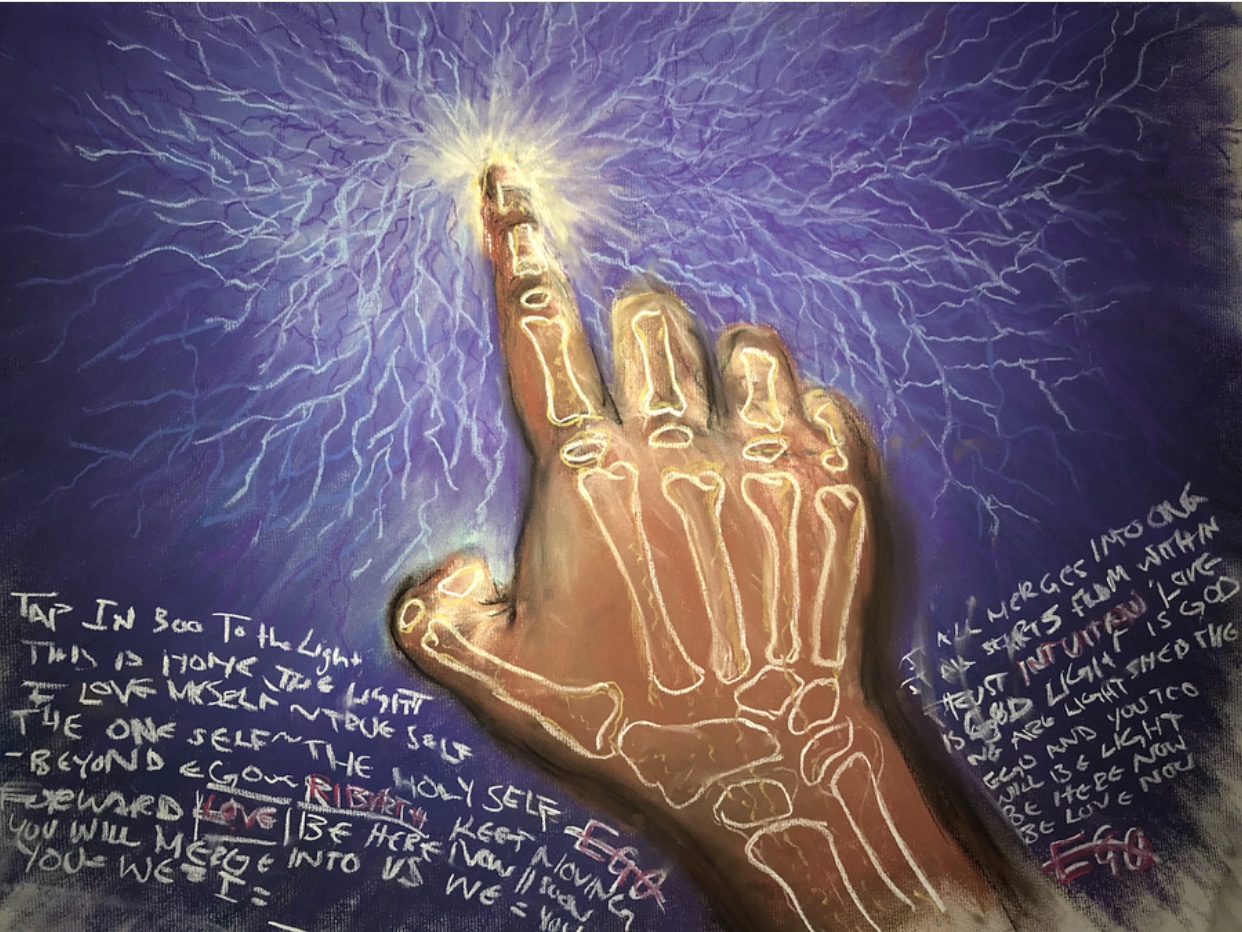 TAP IN BOO To the Light
THIS IS HOME THE LIGHT
I LOVE MYSELF ~ TRUE SELF
THE ONE SELF ~ THE HOLY SELF
- BEYOND EGO RIBIRTH KEEP MOVING
FORWARD | LOVE | BE HERE NOW || SOON
YOU WILL MERGE INTO US WE = YOU
YOU = WE = I =
EGO
IT ALL MERGES INTO ONE
IT ALL STARTS FROM WITHIN
TRUST INTUITION LOVE
IS GOD LIGHT IS GOD
WE ARE LIGHT SHED THE
EGO AND YOU TOO
WILL BE LIGHT
BE HERE NOW
BE LOVE NOW
EGO